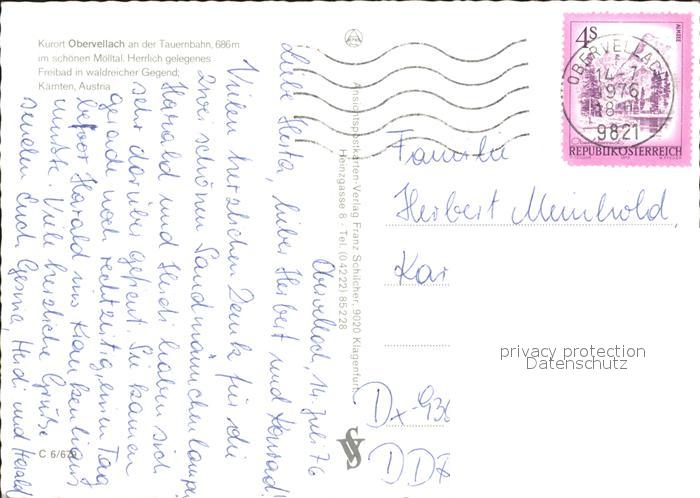 Kurort Obervellach an der Tauernbahn, 686m
im schönen Mölltal. Herrlich gelegenes
Freibad in waldreicher Gegend;
Kärnten, Austria
Obervellach, 14. Juli 76
Liebe Herta, lieber Herbert und Konrad!
Vielen herzlichen Dank für die
zwei schönen Sandmännchenlampen
Harald und Heidi haben sich
sehr darüber gefreut. Sie kamen
gerade noch rechtzeitig einen Tag
bevor Harald ins Krankenhaus
mußte. Viele herzliche Grüße
senden Euch Gesina, Heidi und Harald
C 6/67
Ansichtspostkarten-Verlag Franz Schilcher, 9020 Klagenfurt
Heinzgasse 8 - Tel. (04222) 85228
4S
ALMSEE
REPUBLIK ÖSTERREICH
OBERVELLACH
14.-7.
1976
18
9821
Familie
Herbert Meinhold,
Kar
privacy protection
Datenschutz
DX-936
DDX